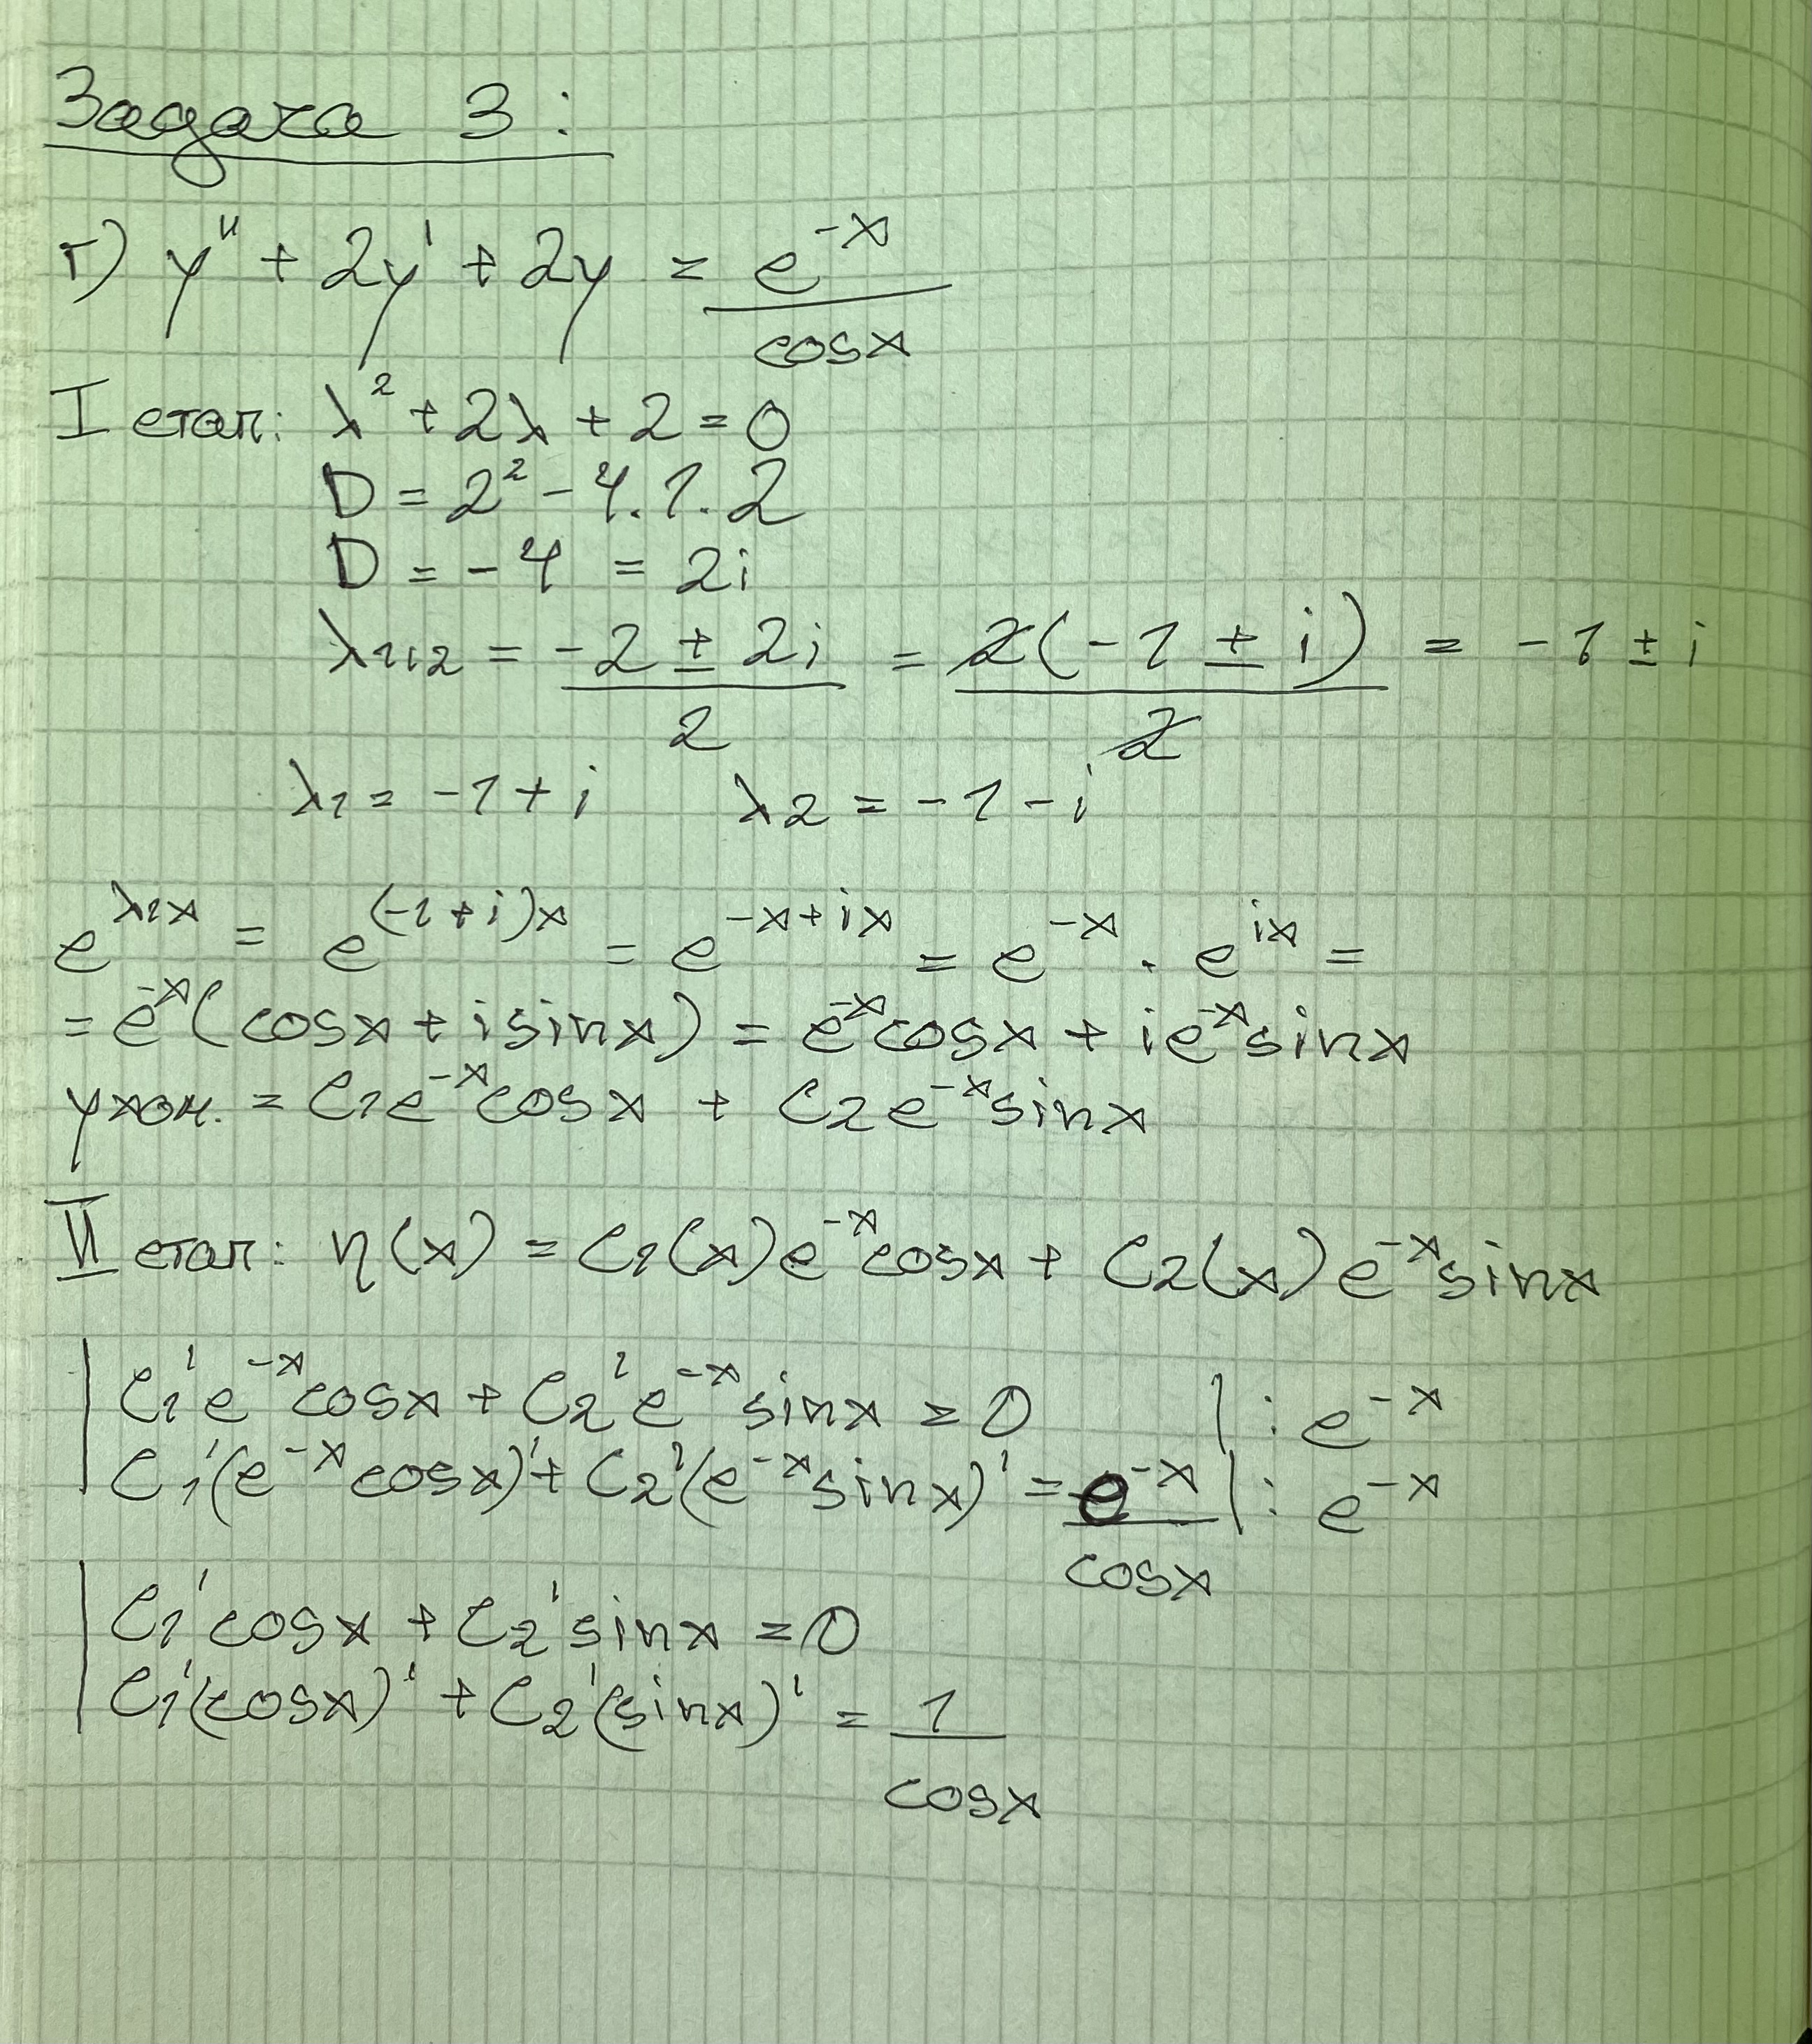 Задача 3:
г) y'' + 2y' + 2y = e^{-x} / cosx
I етап: λ² + 2λ + 2 = 0
D = 2² - 4.1.2
D = -4 = 2i
λ₁,₂ = (-2 ± 2i) / 2 = 2(-1 ± i) / 2 = -1 ± i
λ₁ = -1 + i λ₂ = -1 - i
e^{λ₁x} = e^{(-1+i)x} = e^{-x+ix} = e^{-x} . e^{ix} =
= e^{-x}(cosx + isinx) = e^{-x}cosx + ie^{-x}sinx
yхом. = C₁e^{-x}cosx + C₂e^{-x}sinx
II етап: η(x) = C₁(x)e^{-x}cosx + C₂(x)e^{-x}sinx
| C₁'e^{-x}cosx + C₂'e^{-x}sinx = 0 | : e^{-x}
| C₁'(e^{-x}cosx)' + C₂'(e^{-x}sinx)' = e^{-x} / cosx | : e^{-x}
| C₁'cosx + C₂'sinx = 0
| C₁'(cosx)' + C₂'(sinx)' = 1 / cosx